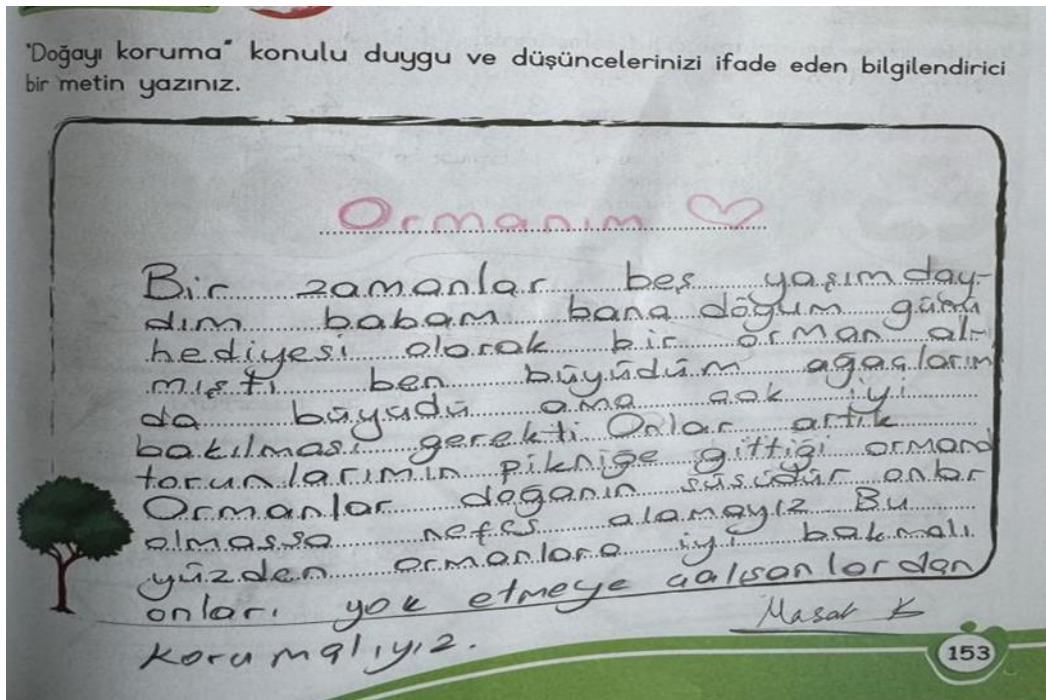 "Doğayı koruma" konulu duygu ve düşüncelerinizi ifade eden bilgilendirici
bir metin yazınız.
Ormanım
Bir zamanlar beş yaşımday-
dım babam bana döğum günü
hediyesi olarak bir orman al-
mıştı ben büyüdüm ağaçlarım
da büyüdü ama çok iyi
bakılması gerekti Onlar artık
torunlarımın pikniğe gittiği ormand
Ormanlar doğanın süsüdür onlar
olmassa nefes alamayız Bu
yüzden ormanlara iyi bakmalı
onları yok etmeye çalışanlardan
korumalıyız.
Masal K
153